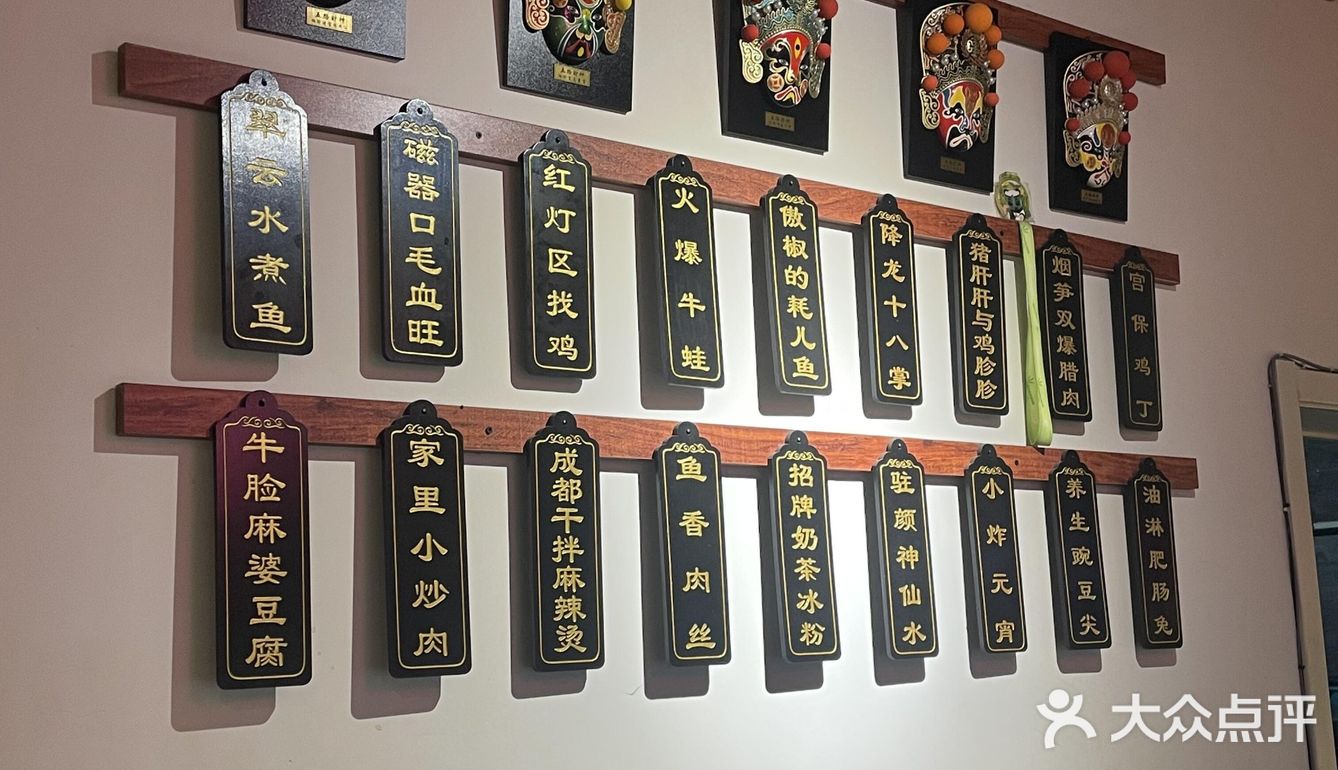 五路财神
五路财神
五路财神
翠云水煮鱼
磁器口毛血旺
红灯区找鸡
火爆牛蛙
傲椒的耗儿鱼
降龙十八掌
猪肝肝与鸡胗胗
烟笋双爆腊肉
宫保鸡丁
牛脸麻婆豆腐
家里小炒肉
成都干拌麻辣烫
鱼香肉丝
招牌奶茶冰粉
驻颜神仙水
小炸元宵
养生豌豆尖
油淋肥肠兔
大众点评